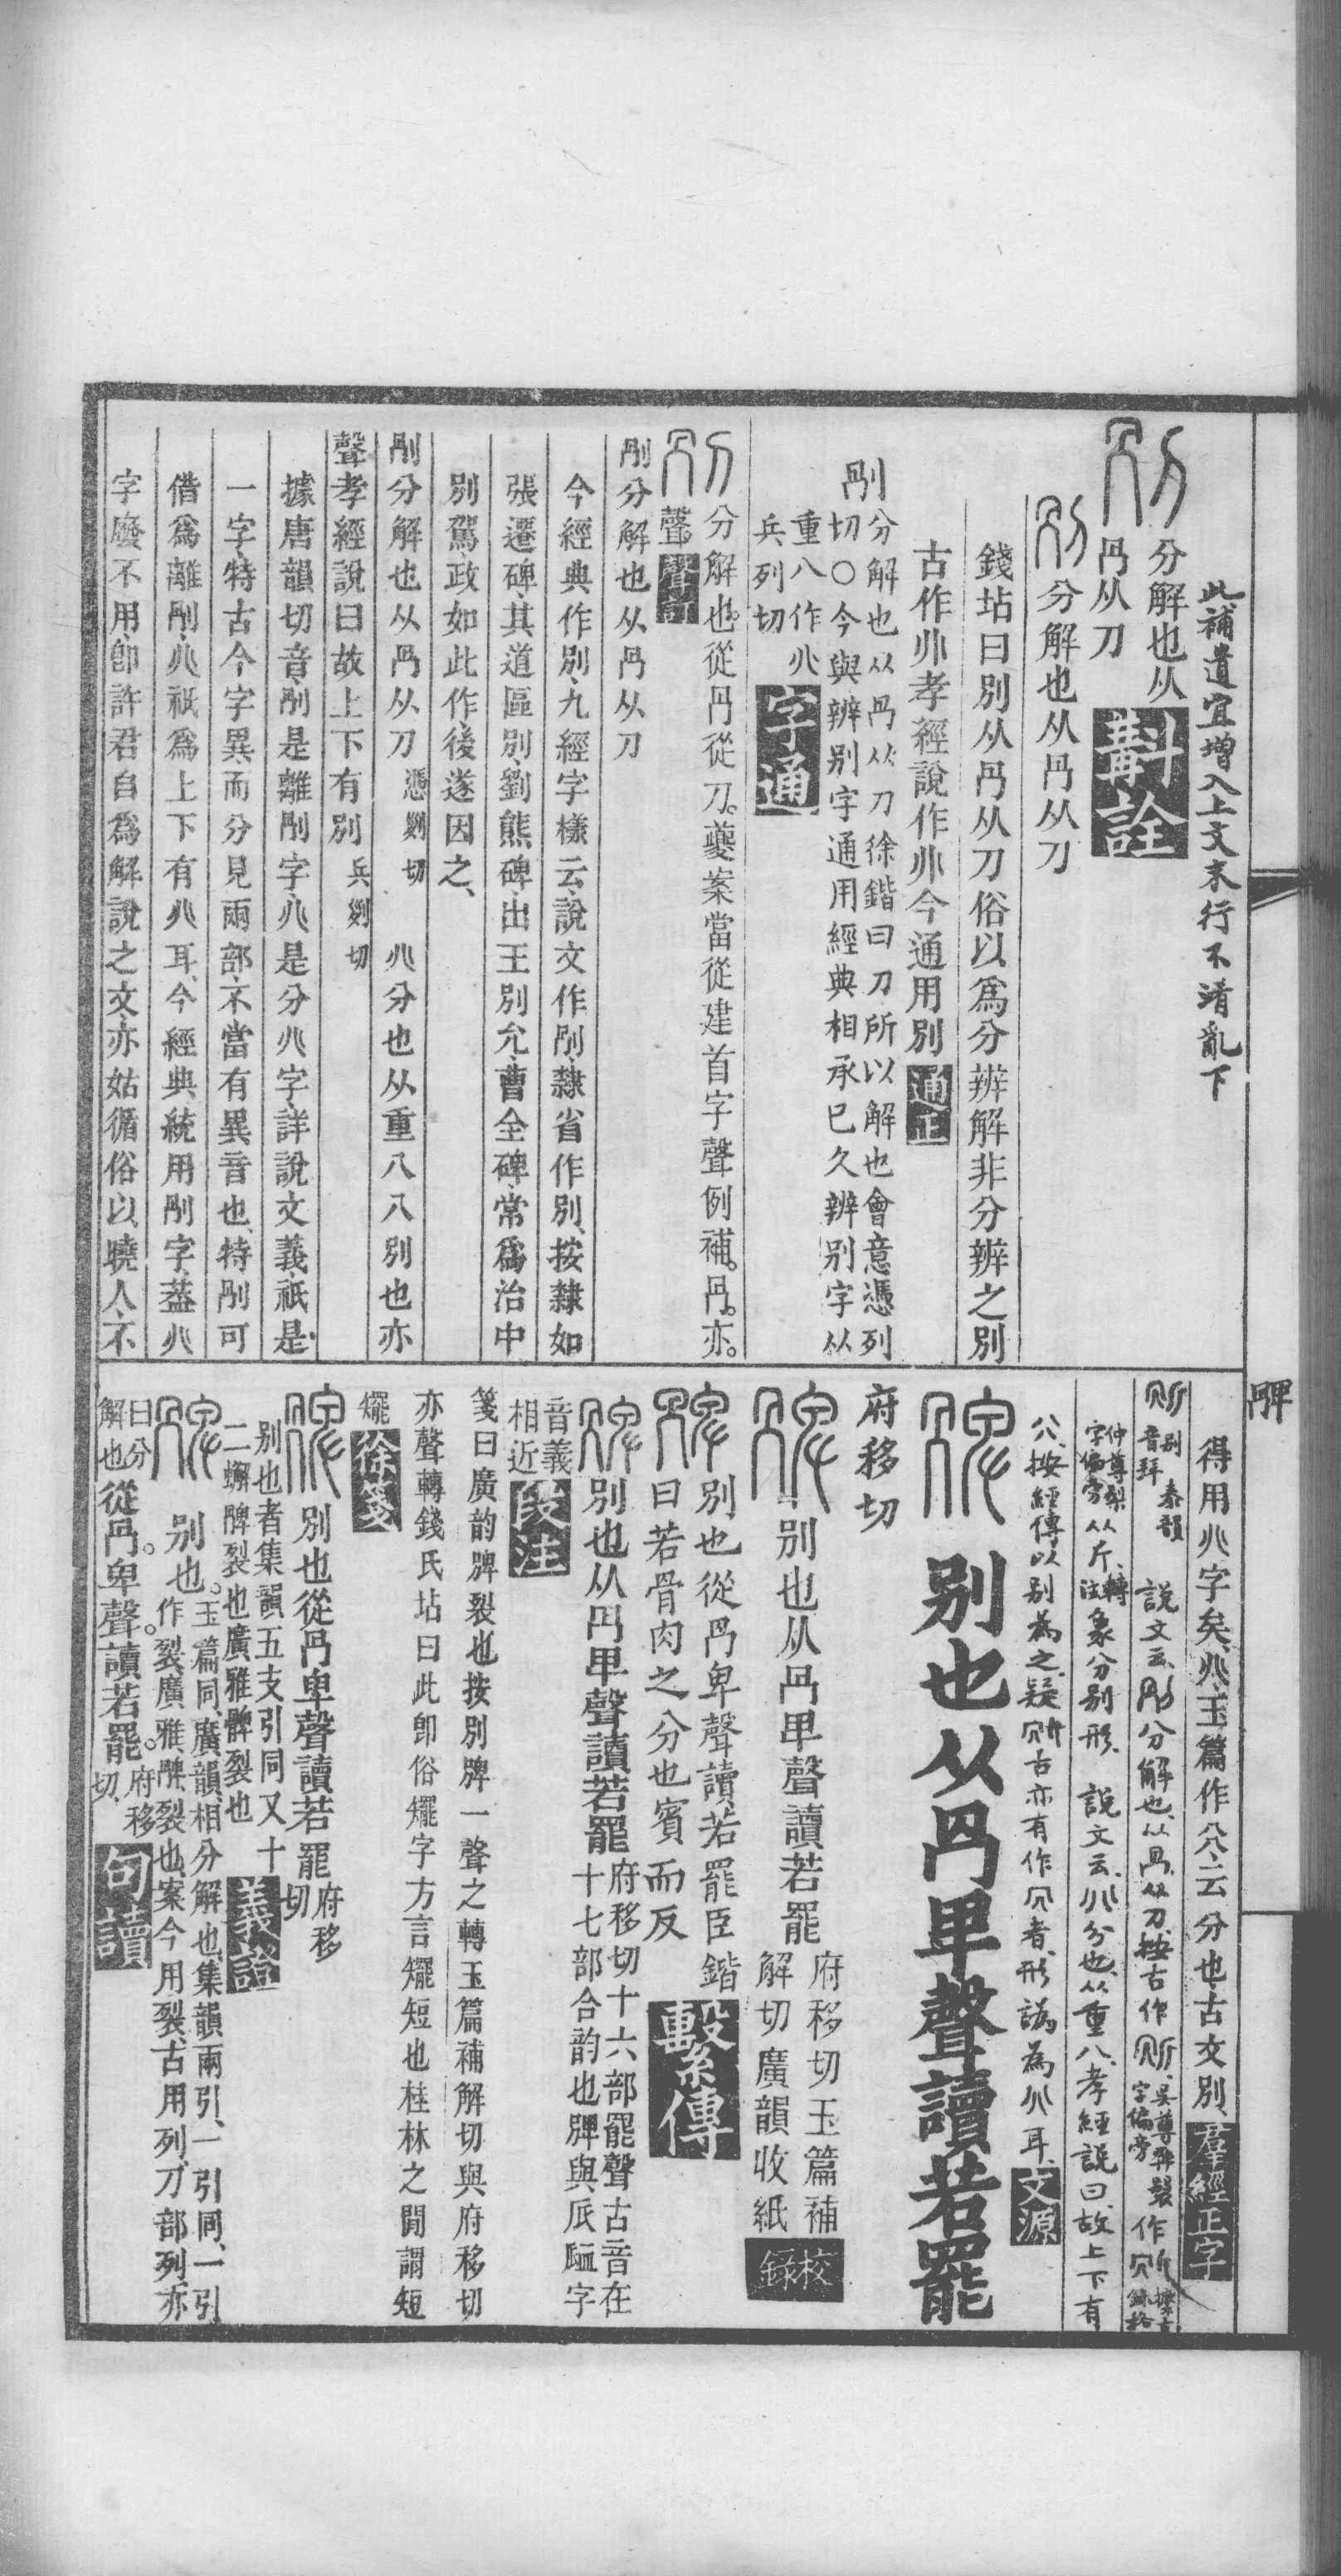 此補遺宜增入上文末行不淸亂下
分解也从
冎从刀
斠詮
分解也从冎从刀
錢坫曰別从冎从刀俗以爲分辨解非分辨之別
古作𠔁孝經說作𠔁今通用別
通正
剐分解也从冎从刀徐鍇曰刀所以解也會意憑列
切〇今與辨别字通用經典相承已久辨别字从
重八作𠔁
兵列切
字通
分解也。從冎從刀。夔案當從建首字聲例補。冎。亦。
聲
聲訂
剐分解也从冎从刀
今經典作別、九經字樣云、說文作剐、隸省作別、按隸如
張遷碑、其道區別、劉熊碑、出王別允、曹全碑、常爲治中
別駕、政如此作、後遂因之、
剐分解也从冎从刀 憑剡切 𠔁分也从重八八別也亦
聲孝經說曰故上下有別 兵剡切
據唐韻切音、剐是離剐字、𠔁是分𠔁字、詳說文義、祇是
一字、特古今字異、而分見兩部、不當有異音也、特剐可
借爲離剐、𠔁祇爲上下有𠔁耳、今經典統用剐字、葢𠔁
字廢不用、卽許君自爲解說之文、亦姑循俗以曉人、不
𩨨
得用𠔁字矣、𠔁、玉篇作㕣、云分也、古文別、
羣經正字
別 音拜 泰韻 說文云、剐分解也、从冎从刀、按古作
字偏旁从斤、轉注象分别形、說文云、𠔁分也、从重八、孝經說曰、故上下有
八、按經傳以别為之、疑古亦有作者、形譌為𠔁耳、
文源
別也从冎卑聲讀若罷
府移切
別也从冎卑聲讀若罷 府移切玉篇補
解切廣韻收紙
校錄
別也從冎卑聲讀若罷臣鍇
曰若骨肉之分也賓而反
繫傳
別也从冎卑聲讀若罷 府移切十六部罷聲古音在
十七部合韵也𩨨與𠂢𧖴字
音義
相近
段注
箋曰廣韵𩨨裂也按別𩨨一聲之轉玉篇補解切與府移切
亦聲轉錢氏坫曰此卽俗䎱字方言䎱短也桂林之閒謂短
䎱
徐箋
別也從冎卑聲讀若罷 府移切
別也者集韻五支引同又十
二蟹𩨨裂也廣雅𩨨裂也
義證
別也。玉篇同、廣韻、相分解也、集韻兩引、一引同、一引
作裂、廣雅、𩨨、裂也、案今用裂、古用列、刀部列、亦
曰分
解也、從冎。卑聲。讀若罷。府移
切、
句讀